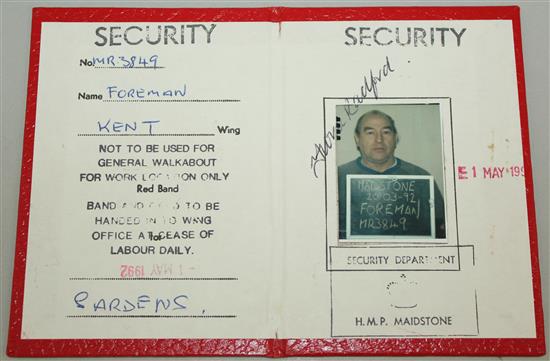 SECURITY
No. MR3849
Name FOREMAN
KENT Wing
NOT TO BE USED FOR
GENERAL WALKABOUT
FOR WORK LOCATION ONLY
Red Band
BAND AND TO BE
HANDED IN TO WING
OFFICE AT CEASE OF
LABOUR DAILY.
-1 MAY 1992
GARDENS.
SECURITY
Radford
MAIDSTONE
20-03-92
FOREMAN
MR3849
1 MAY 199
SECURITY DEPARTMENT
H.M.P. MAIDSTONE